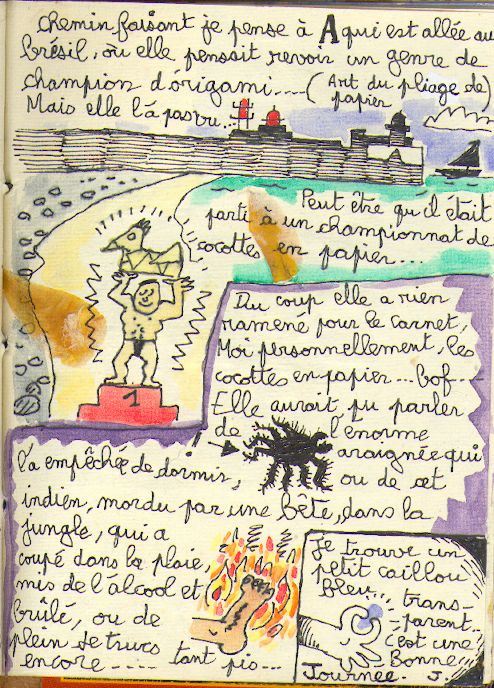 chemin faisant je pense à A qui est allée au
brésil, où elle pensait revoir un genre de
champion d'origami.... (Art du pliage de)
papier
Mais elle l'a pas vu...
Peut être qu'il était
parti à un championnat de
cocottes en papier....
1
Du coup elle a rien
ramené pour le carnet,
Moi personnellement, les
cocottes en papier... Bof---
Elle aurait pu parler
de l'énorme
araignée qui
l'a empêchée de dormir, ou de cet
indien, mordu par une bête, dans la
jungle, qui a
coupé dans la plaie,
mis de l'álcool et
brûlé, ou de
plein de trucs
encore ---- tant pis...
Je trouve un
petit caillou
bleu... trans-
parent..
c'est une
Bonne
Journée. J.